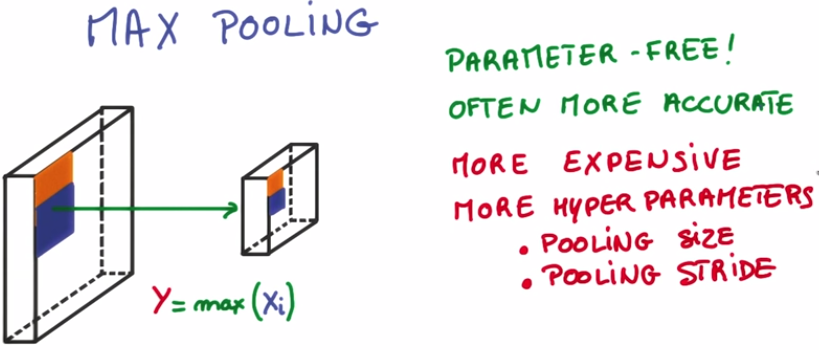 MAX POOLING
PARAMETER-FREE!
OFTEN MORE ACCURATE
MORE EXPENSIVE
MORE HYPERPARAMETERS
• POOLING SIZE
• POOLING STRIDE
Y = max(Xi)